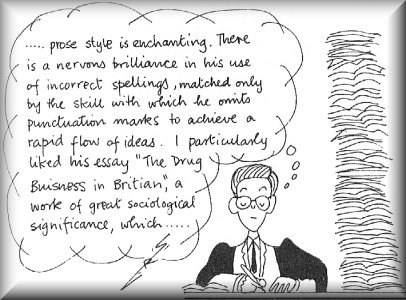 ..... prose style is enchanting. There
is a nervous brilliance in his use
of incorrect spellings, matched only
by the skill with which he omits
punctuation marks to achieve a
rapid flow of ideas. I particularly
liked his essay "The Drug
Buisness in Britian," a
work of great sociological
significance, which .....